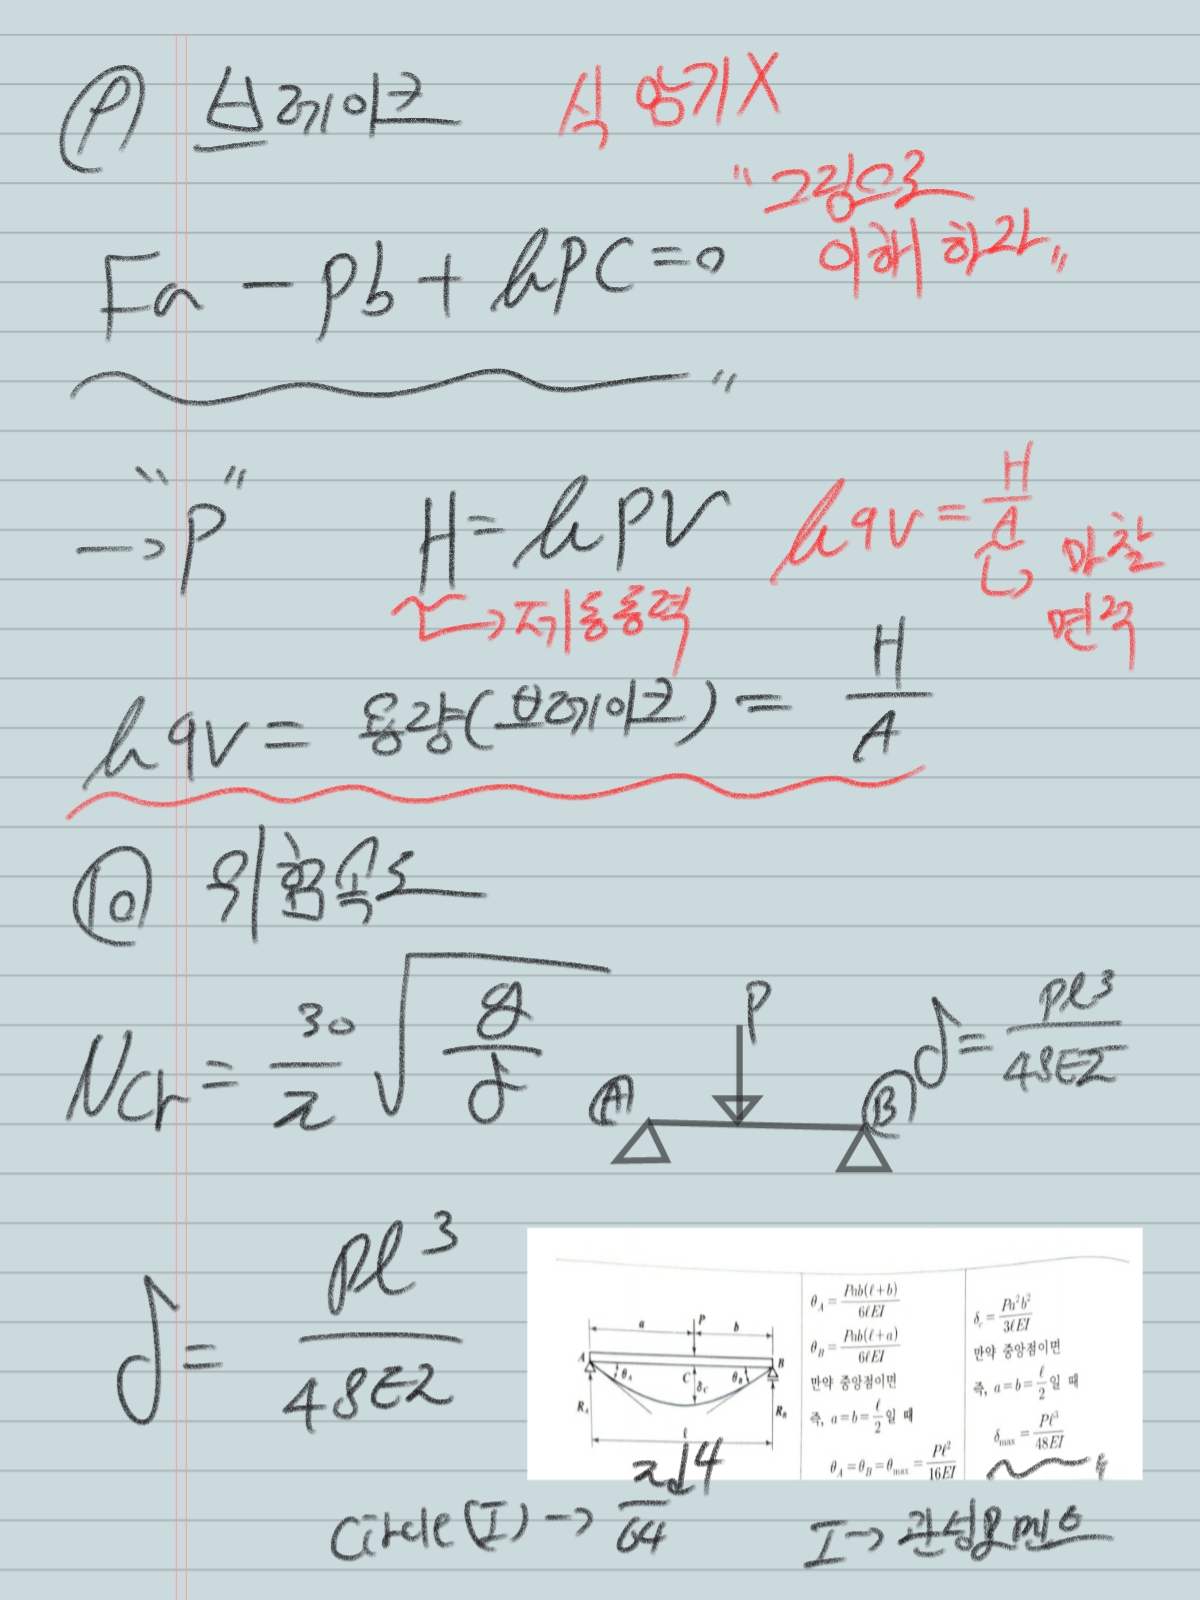 ⑨ 브레이크 식 암기X
"그림으로
이해하라"
Fa - Pb + μPC = 0
→ "P" H = μPV μqv = H/A
→ 제동동력 마찰
면적
μqv = 용량(브레이크) = H/A
⑩ 위험속도
Ncr = 30/π √(g/δ) P Ⓐ Ⓑ δ = Pℓ³/48EI
δ = Pℓ³/48EI
a P b
A C B
θ_A δ_C θ_B
R_A R_B
ℓ
θ_A = Pab(ℓ+b)/6ℓEI
θ_B = Pab(ℓ+a)/6ℓEI
만약 중앙점이면
즉, a=b=ℓ/2일 때
θ_A = θ_B = θ_max = Pℓ²/16EI
δ_c = Pa²b²/3ℓEI
만약 중앙점이면
즉, a=b=ℓ/2일 때
δ_max = Pℓ³/48EI
Circle(I) → πd4/64 I → 관성모멘트